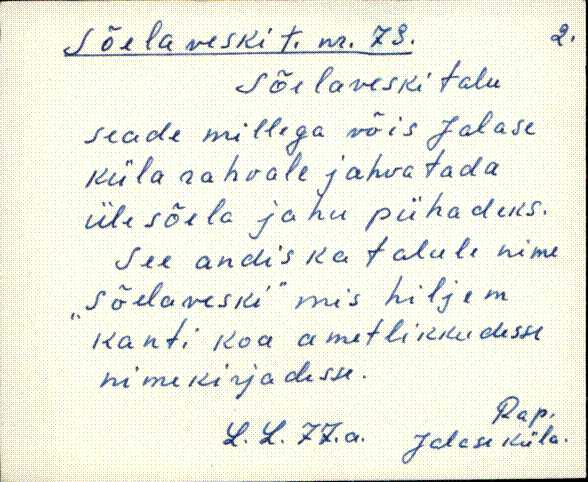 Sõelaveski t. nr. 73. 2.
Sõelaveski talu
seade millega võis Jalase
küla rahvale jahvatada
üle sõela jahu pühadeks.
See andis ka talule nime
„Sõelaveski" mis hiljem
kanti koa ametlikkudesse
nimekirjadesse.
Rap.
L. L. 77.a. Jalase küla.